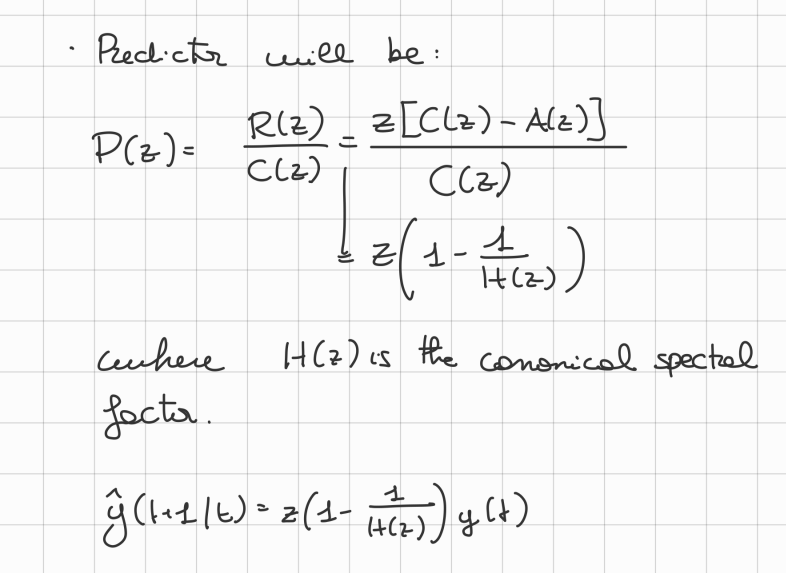 · Predictor will be:
P(z) = R(z)/C(z) = z[C(z) - A(z)]/C(z)
= z(1 - 1/H(z))
where H(z) is the canonical spectral
factor.
ŷ(t+1|t) = z(1 - 1/H(z)) y(t)